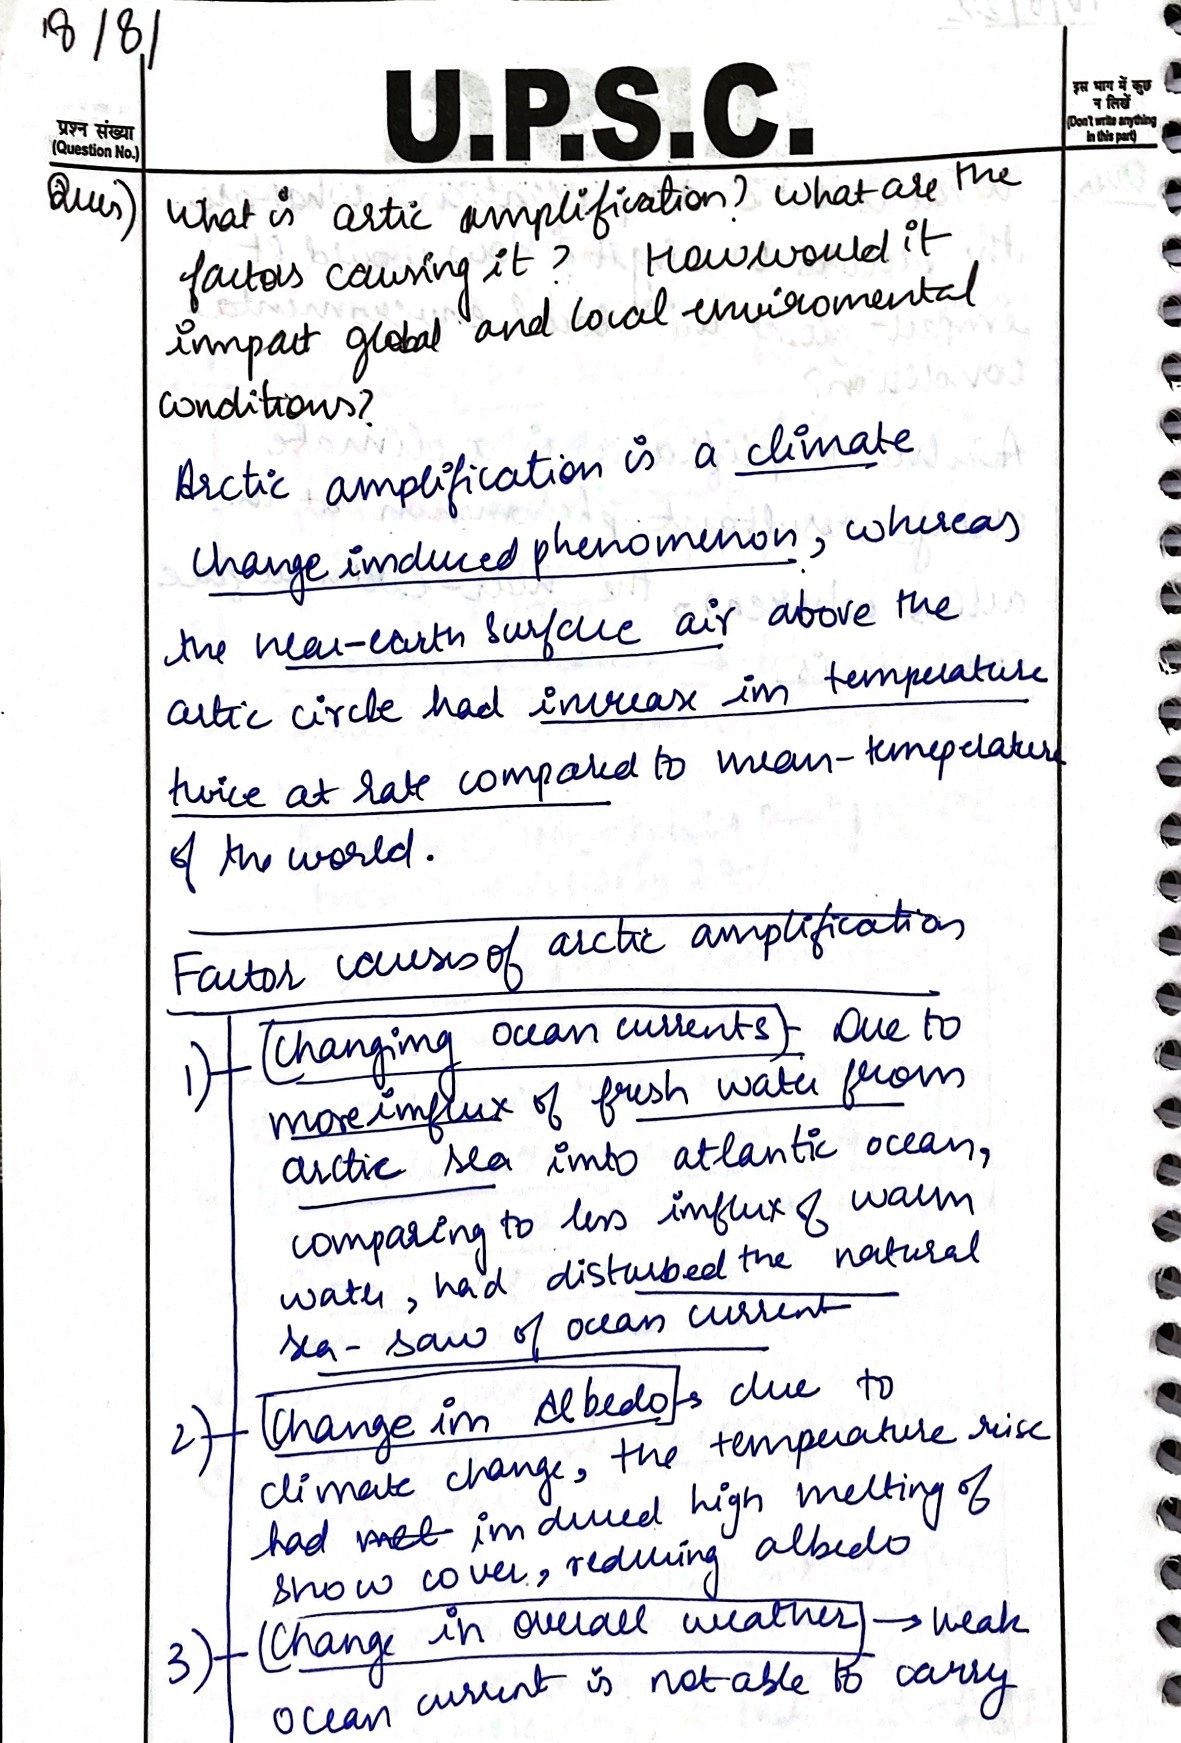 18/8/
U.P.S.C.
प्रश्न संख्या
(Question No.)
इस भाग में कुछ
न लिखें
(Don't write anything
in this part)
Ques) What is artic amplification? What are the
factors causing it? How would it
imnpact global and local enviromental
conditions?
Arctic amplification is a climate
change induced phenomenon, whereas
the near-earth surface air above the
artic circle had increase in temperature
twice at rate compared to mean-temeperature
of the world.
Factor causes of arctic amplification
1) Changing ocean currents - Due to
more influx of fresh water from
arctic sea into atlantic ocean,
comparing to less influx of warm
water, had disturbed the natural
sea-saw of ocean current
2) Change in Albedo - due to
climate change, the temperature rise
had met induced high melting of
snow cover, reducing albedo
3) Change in overall weather → weak
ocean current is not able to carry